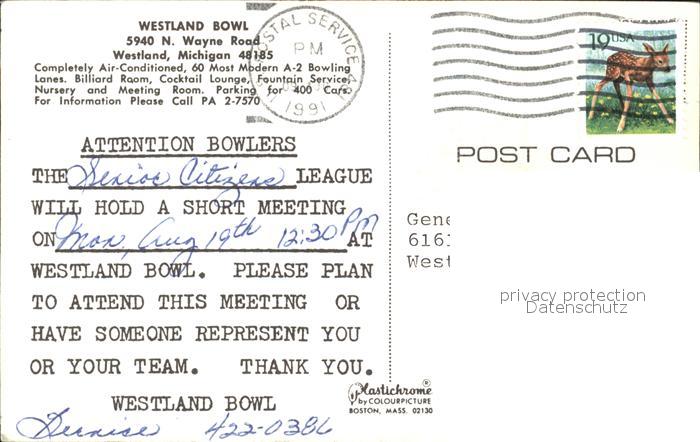 WESTLAND BOWL
5940 N. Wayne Road
Westland, Michigan 48185
Completely Air-Conditioned, 60 Most Modern A-2 Bowling
Lanes. Billiard Room, Cocktail Lounge, Fountain Service,
Nursery and Meeting Room. Parking for 400 Cars.
For Information Please Call PA 2-7570
POSTAL SERVICE
PM
1991
19 USA
POST CARD
ATTENTION BOWLERS
THE Senior Citizens LEAGUE
WILL HOLD A SHORT MEETING
ON Mon, Aug 19th 12:30 PM AT
WESTLAND BOWL. PLEASE PLAN
TO ATTEND THIS MEETING OR
HAVE SOMEONE REPRESENT YOU
OR YOUR TEAM. THANK YOU.
WESTLAND BOWL
Bernice 422-0386
Plastichrome®
by COLOURPICTURE
BOSTON, MASS. 02130
Gene
616
West
privacy protection
Datenschutz